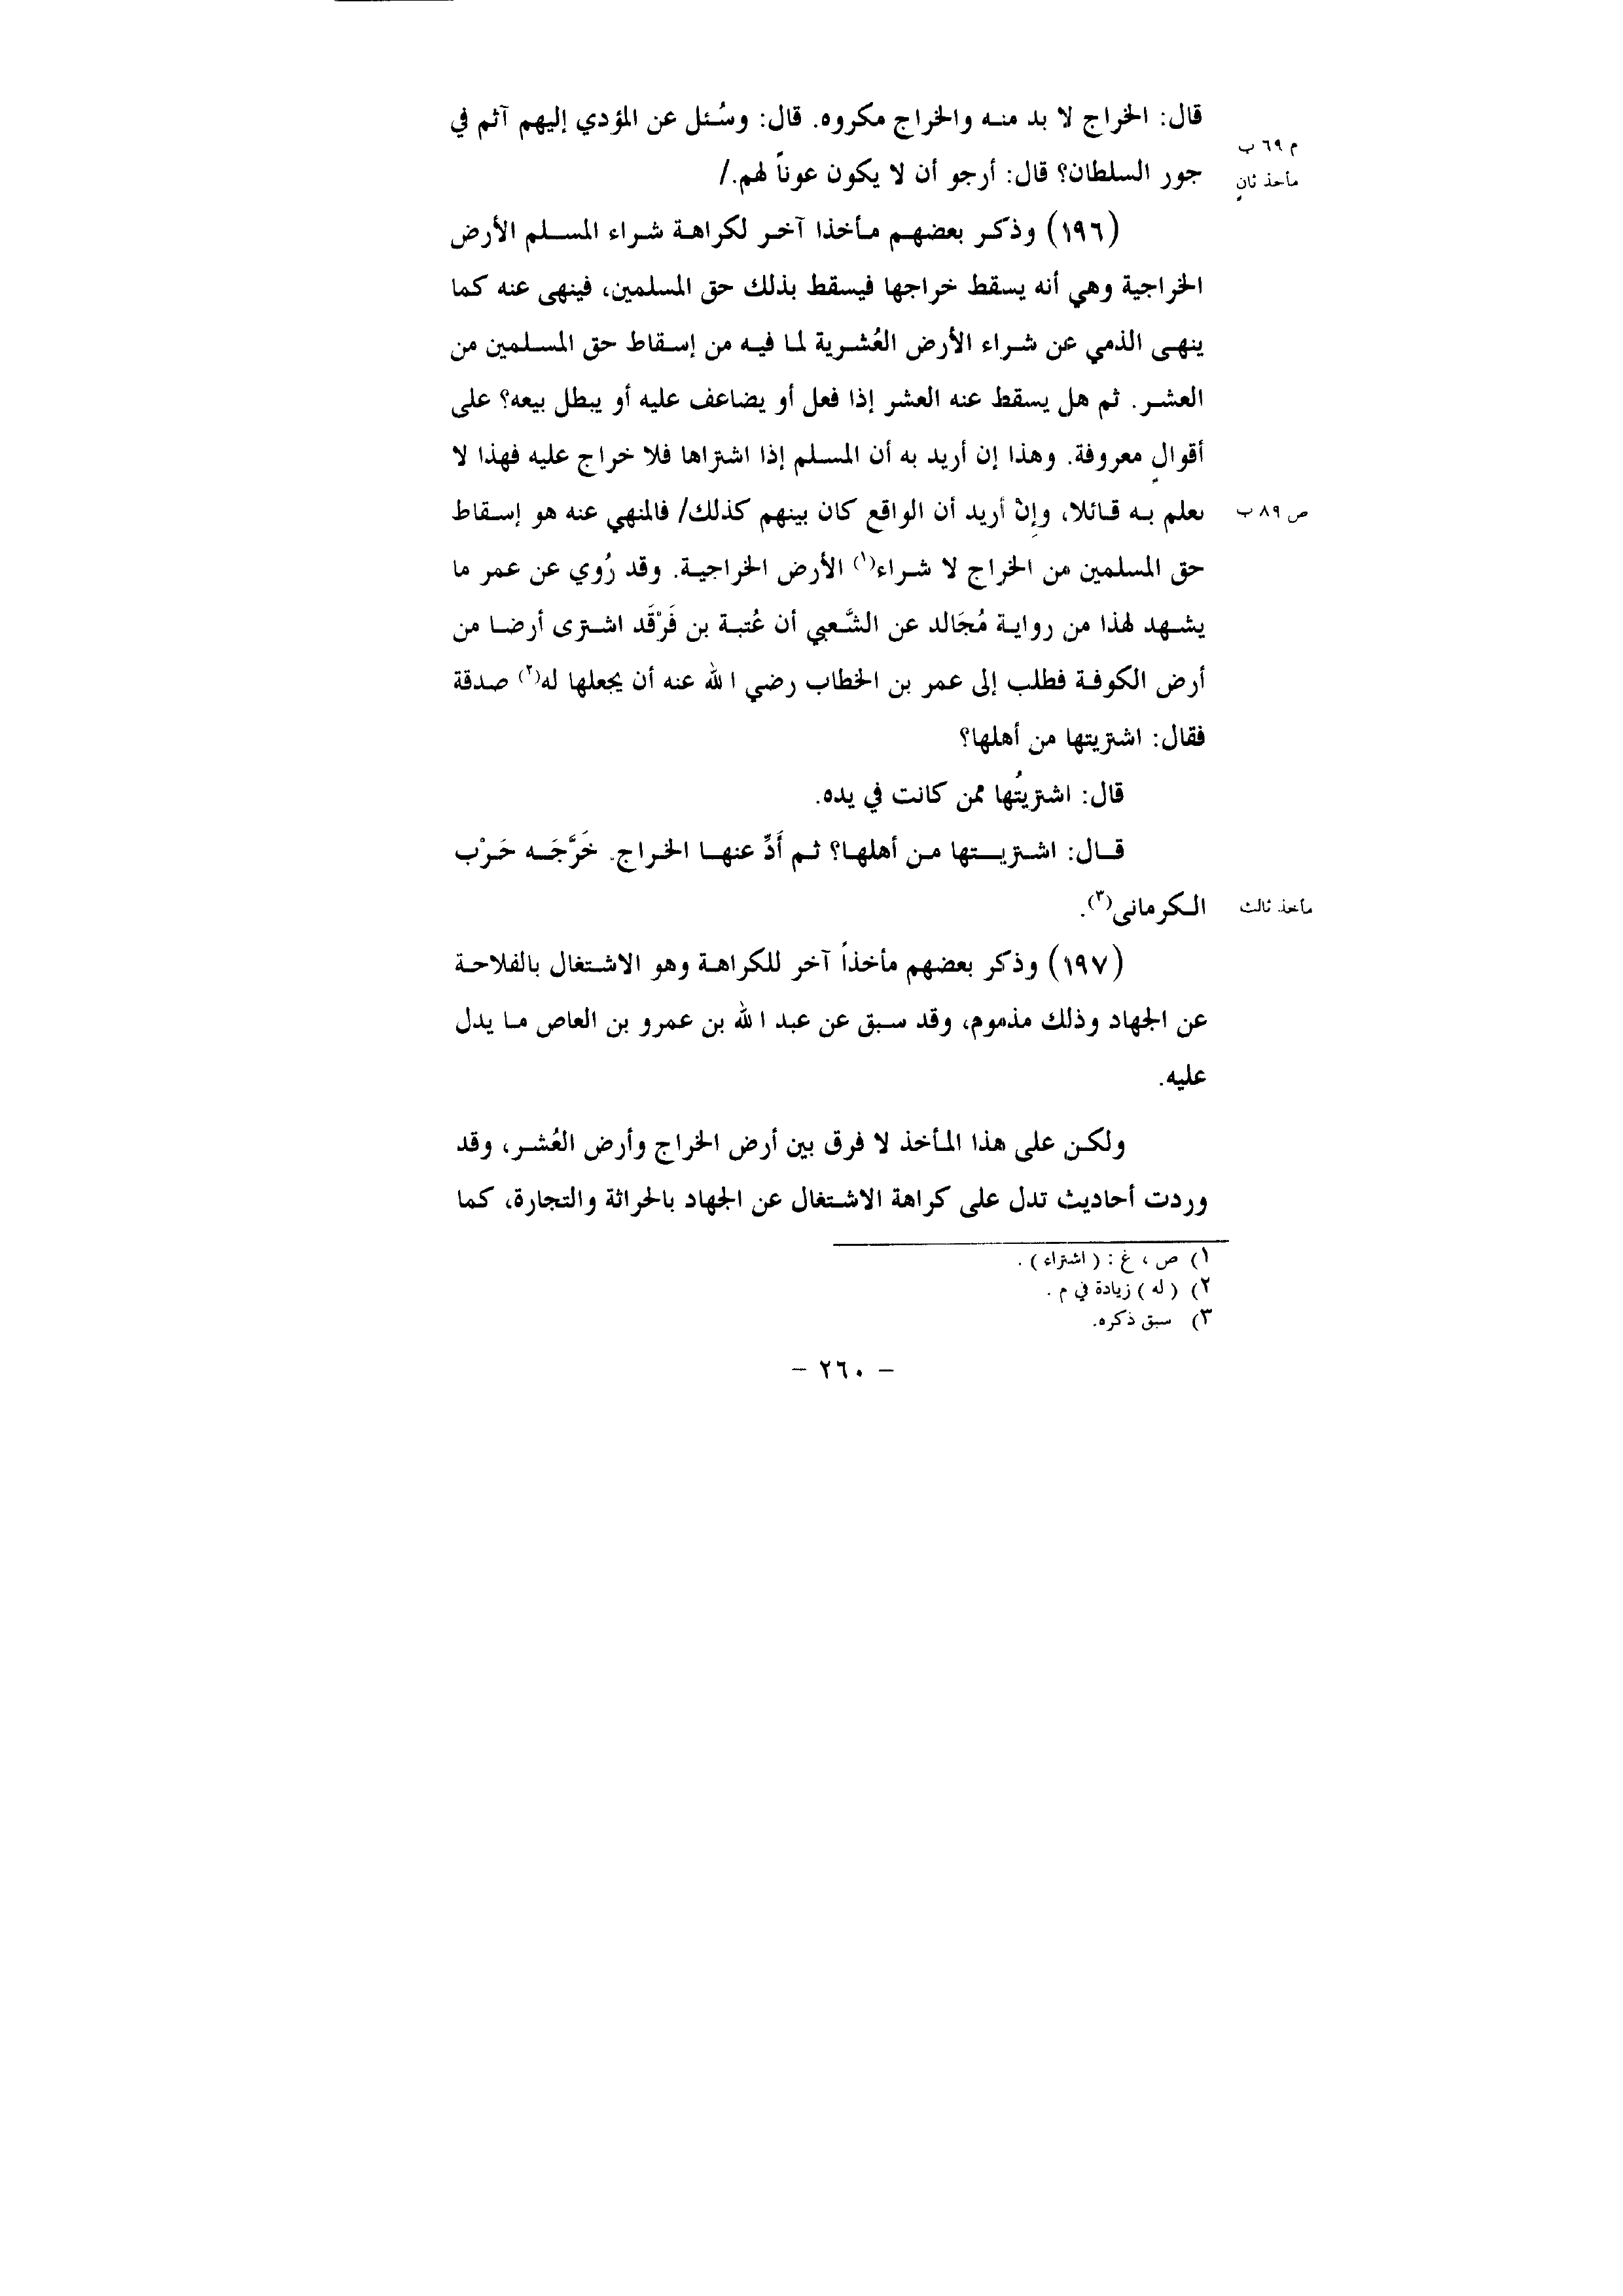 قال: الخراج لا بد منه والخراج مكروه. قال: وسُئل عن المؤدي إليهم آثم في
م ٦٩ ب
جور السلطان؟ قال: أرجو أن لا يكون عوناً لهم./
مأخذ ثانٍ
(١٩٦) وذكر بعضهم مأخذا آخر لكراهة شراء المسلم الأرض
الخراجية وهي أنه يسقط خراجها فيسقط بذلك حق المسلمين، فينهى عنه كما
ينهى الذمي عن شراء الأرض العُشرية لما فيه من إسقاط حق المسلمين من
العشر. ثم هل يسقط عنه العشر إذا فعل أو يضاعف عليه أو يبطل بيعه؟ على
أقوالٍ معروفة. وهذا إن أريد به أن المسلم إذا اشتراها فلا خراج عليه فهذا لا
نعلم به قائلا، وإِنْ أريد أن الواقع كان بينهم كذلك/ فالمنهي عنه هو إسقاط
ص ٨٩ ب
حق المسلمين من الخراج لا شراء(١) الأرض الخراجية. وقد رُوي عن عمر ما
يشهد لهذا من رواية مُجَالد عن الشَّعبي أن عُتبة بن فَرْقَد اشترى أرضا من
أرض الكوفة فطلب إلى عمر بن الخطاب رضي الله عنه أن يجعلها له(٢) صدقة
فقال: اشتريتها من أهلها؟
قال: اشتريتُها ممن كانت في يده.
قال: اشتريتها من أهلها؟ ثم أَدِّ عنها الخراج. خَرَّجَه حَرْب
الكرماني(٣).
مأخذ ثالث
(١٩٧) وذكر بعضهم مأخذاً آخر للكراهة وهو الاشتغال بالفلاحة
عن الجهاد وذلك مذموم، وقد سبق عن عبد الله بن عمرو بن العاص ما يدل
عليه.
ولكن على هذا المأخذ لا فرق بين أرض الخراج وأرض العُشر، وقد
وردت أحاديث تدل على كراهة الاشتغال عن الجهاد بالحراثة والتجارة، كما
١) ص ، غ : ( اشتراء ) .
٢) ( له ) زيادة في م .
٣) سبق ذكره.
– ٢٦٠ –